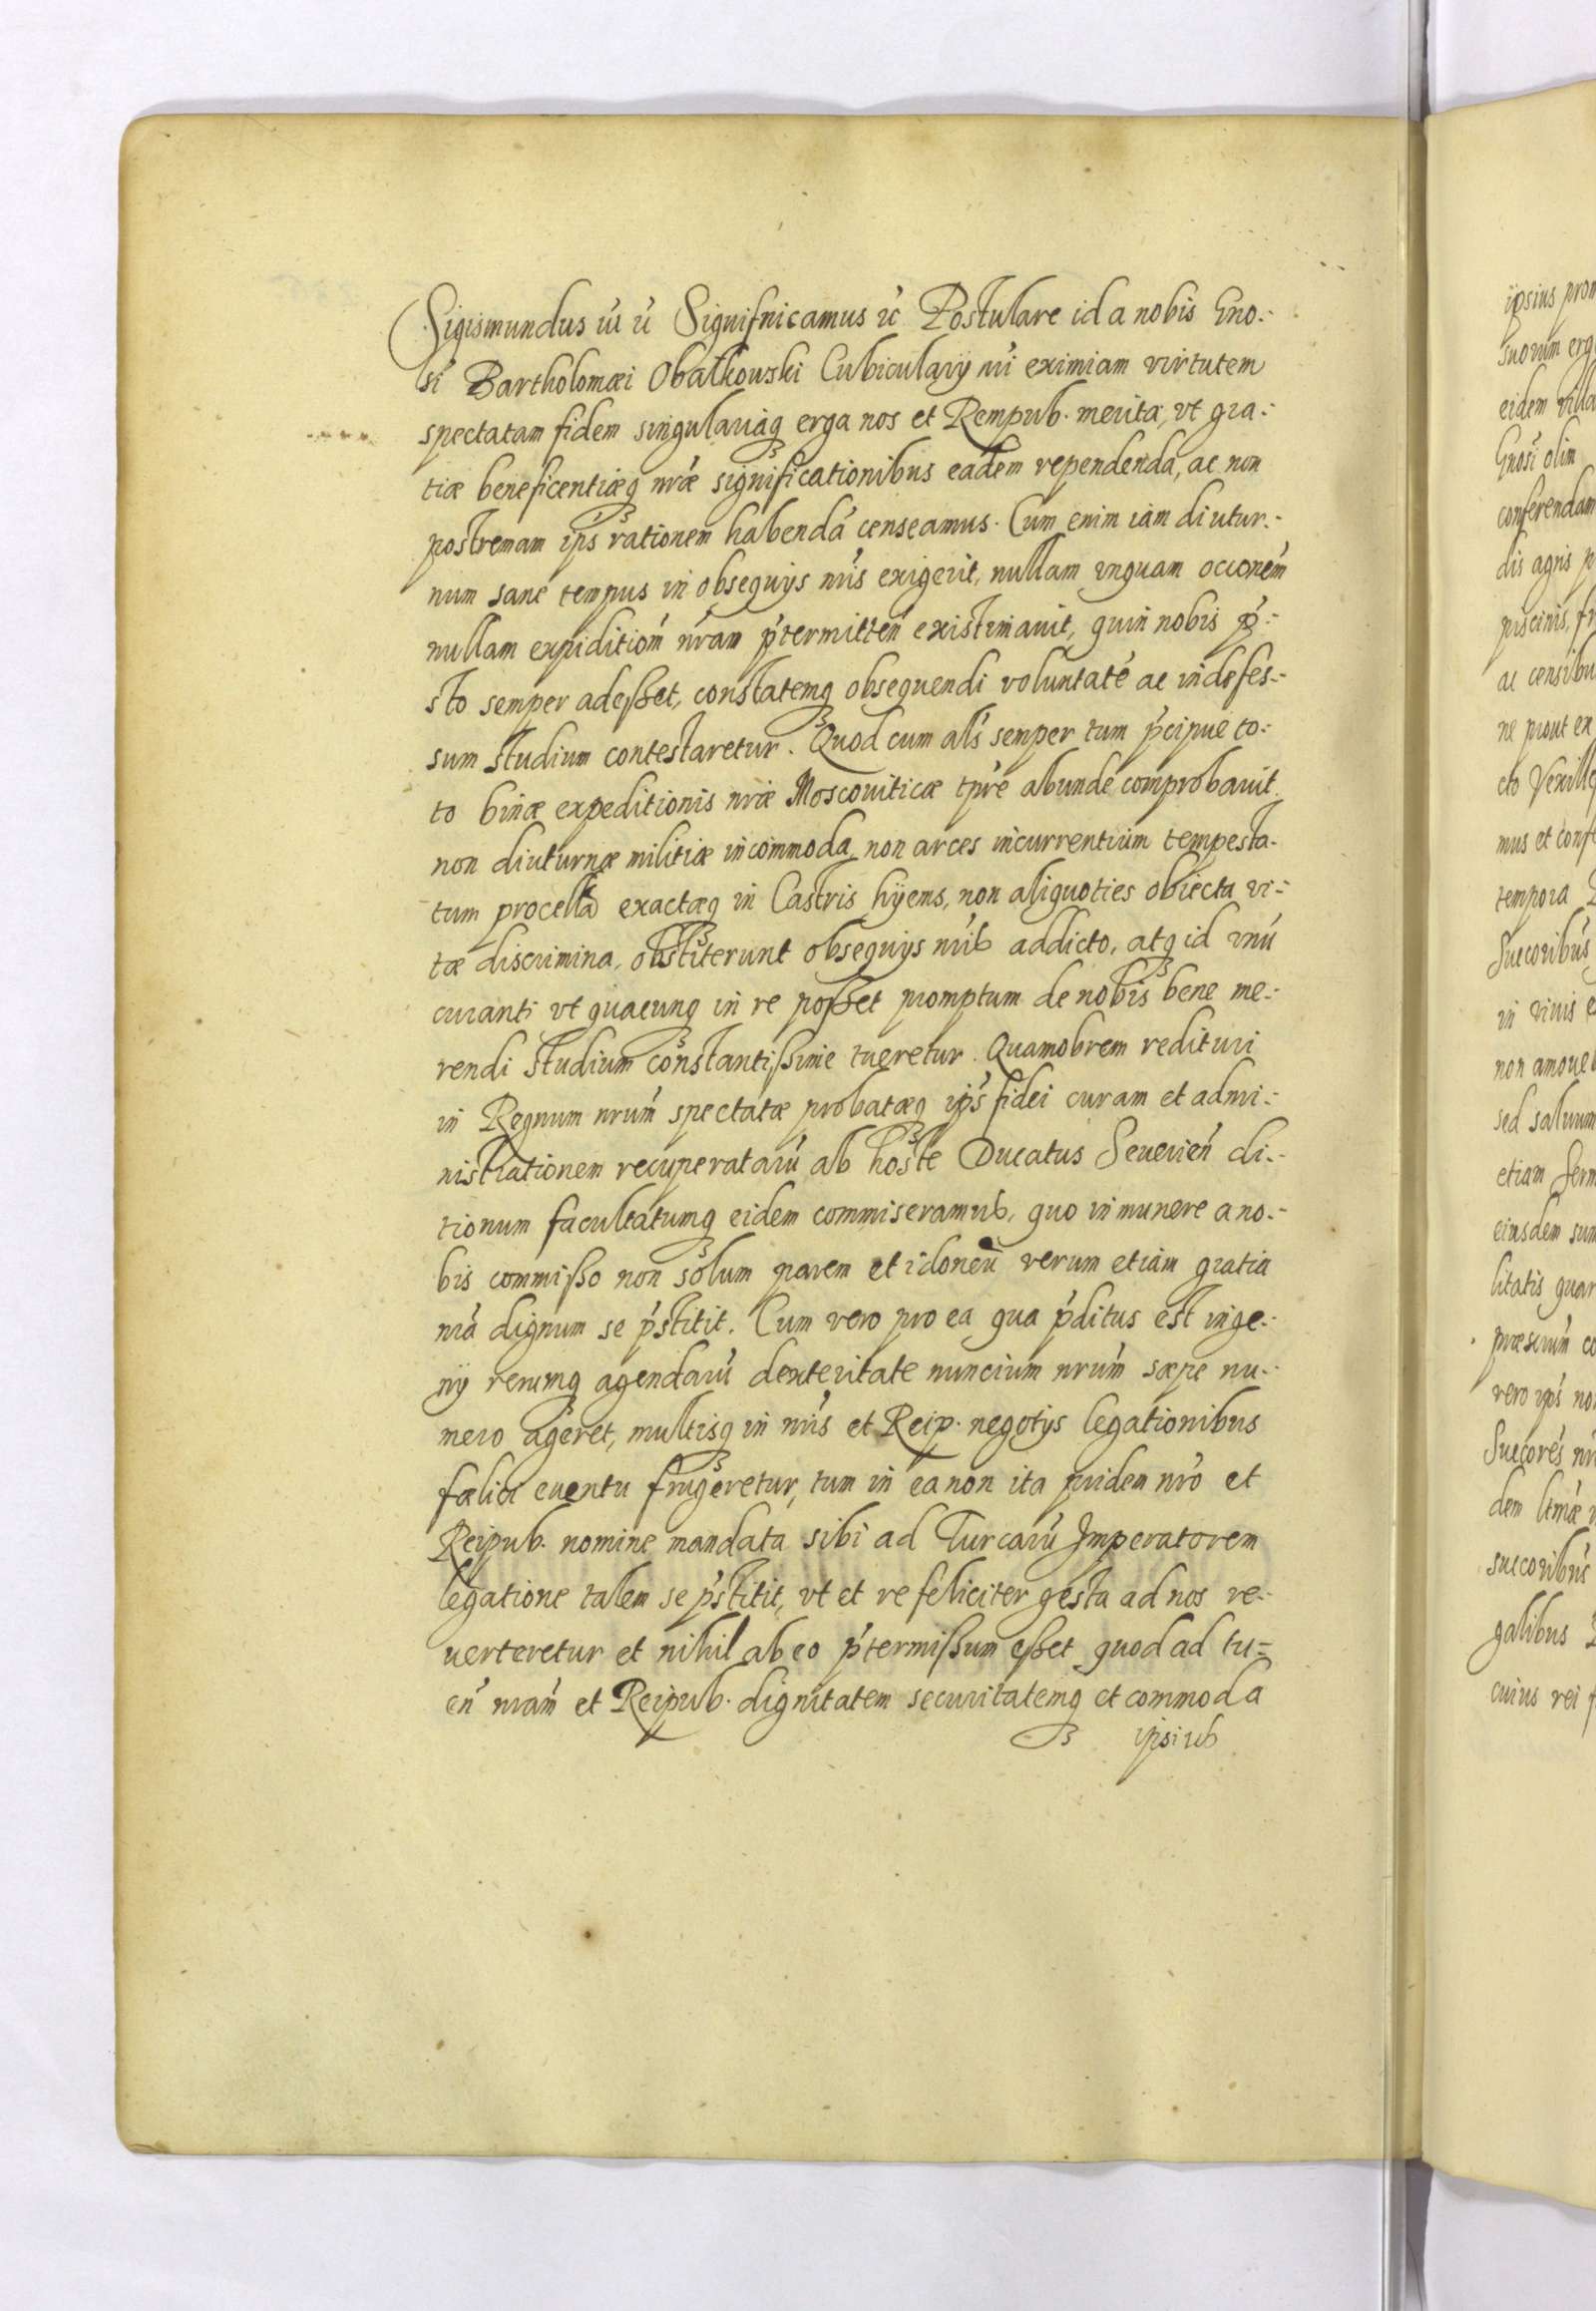 Sigismundus iii ic Signifnicamus ic Postulare id a nobis Gno-
si Bartholomæi Obalkowski Cubicularÿ nri eximiam virtutem
spectatam fidem singulariaq3 erga nos et Rempub. merita, vt gra-
tiæ beneficentiæq3 nræ significationibus eadem rependenda, ac non
postremam ips rationem habendá censeamus. Cum enim iam diutur-
num sane tempus in obsequijs nris exigerit, nullam vnquam occonem
nullam expiditiom nram ptermitten existimauit, quin nobis p-
sto semper adesset, constatemq3 obsequendi voluntaté ac indefes-
sum studium contestaretur. Quod cum als semper tum pcipue to-
to binæ expeditionis nræ Moscouiticæ tpre abunde comprobauit.
non diuturnæ militiæ incommoda, non arces incurrentium tempesta-
tum procella exactæq3 in Castris hÿems, non aliquoties obiecta vi-
tæ discrimina, obstiterunt obsequijs nris addicto, atq3 id vnú
curanti vt quacunq3 in re posset promptum de nobis bene me-
rendi studium constantissime tueretur. Quamobrem redituri
in Regnum nrum spectatæ probatæq3 ips fidei curam et admi-
nistrationem recuperatarú ab hoste Ducatus Seuerien di-
tionum facultatumq3 eidem commiseramus, quo in munere a no-
bis commisso non solum parem et idoneú verum etiam gratia
nra dignum se pstitit. Cum vero pro ea qua pditus est inge-
nÿ rerumq3 agendarú dexteritate nuncium nrum sæpe nu-
mero ageret, multisq3 in nris et Reip. negotijs legationibus
fælici euentu frugeretur, tum in ea non ita pridem nro et
Reipub. nomine mandata sibi ad Turcarú Imperatorem
legatione talem se pstitit, vt et re feliciter gesta ad nos re-
uerteretur et nihil ab eo ptermissum esset quod ad tu-
en nram et Reipub. dignitatem securitatemq3 et commoda
ipsius
ipsius
suorum erg
eidem villa
Gnosi olim
conferendam
dis agris
piscinis,
ac censibu
ne prout ex
cto
mus et conf
tempora
Succoribus
in viuis
non amoue
sed saluum
etiam
eiusdem sum
litatis quar
præscrium
vero ips no
Succores
dem
succoribus
galibus
cuius rei